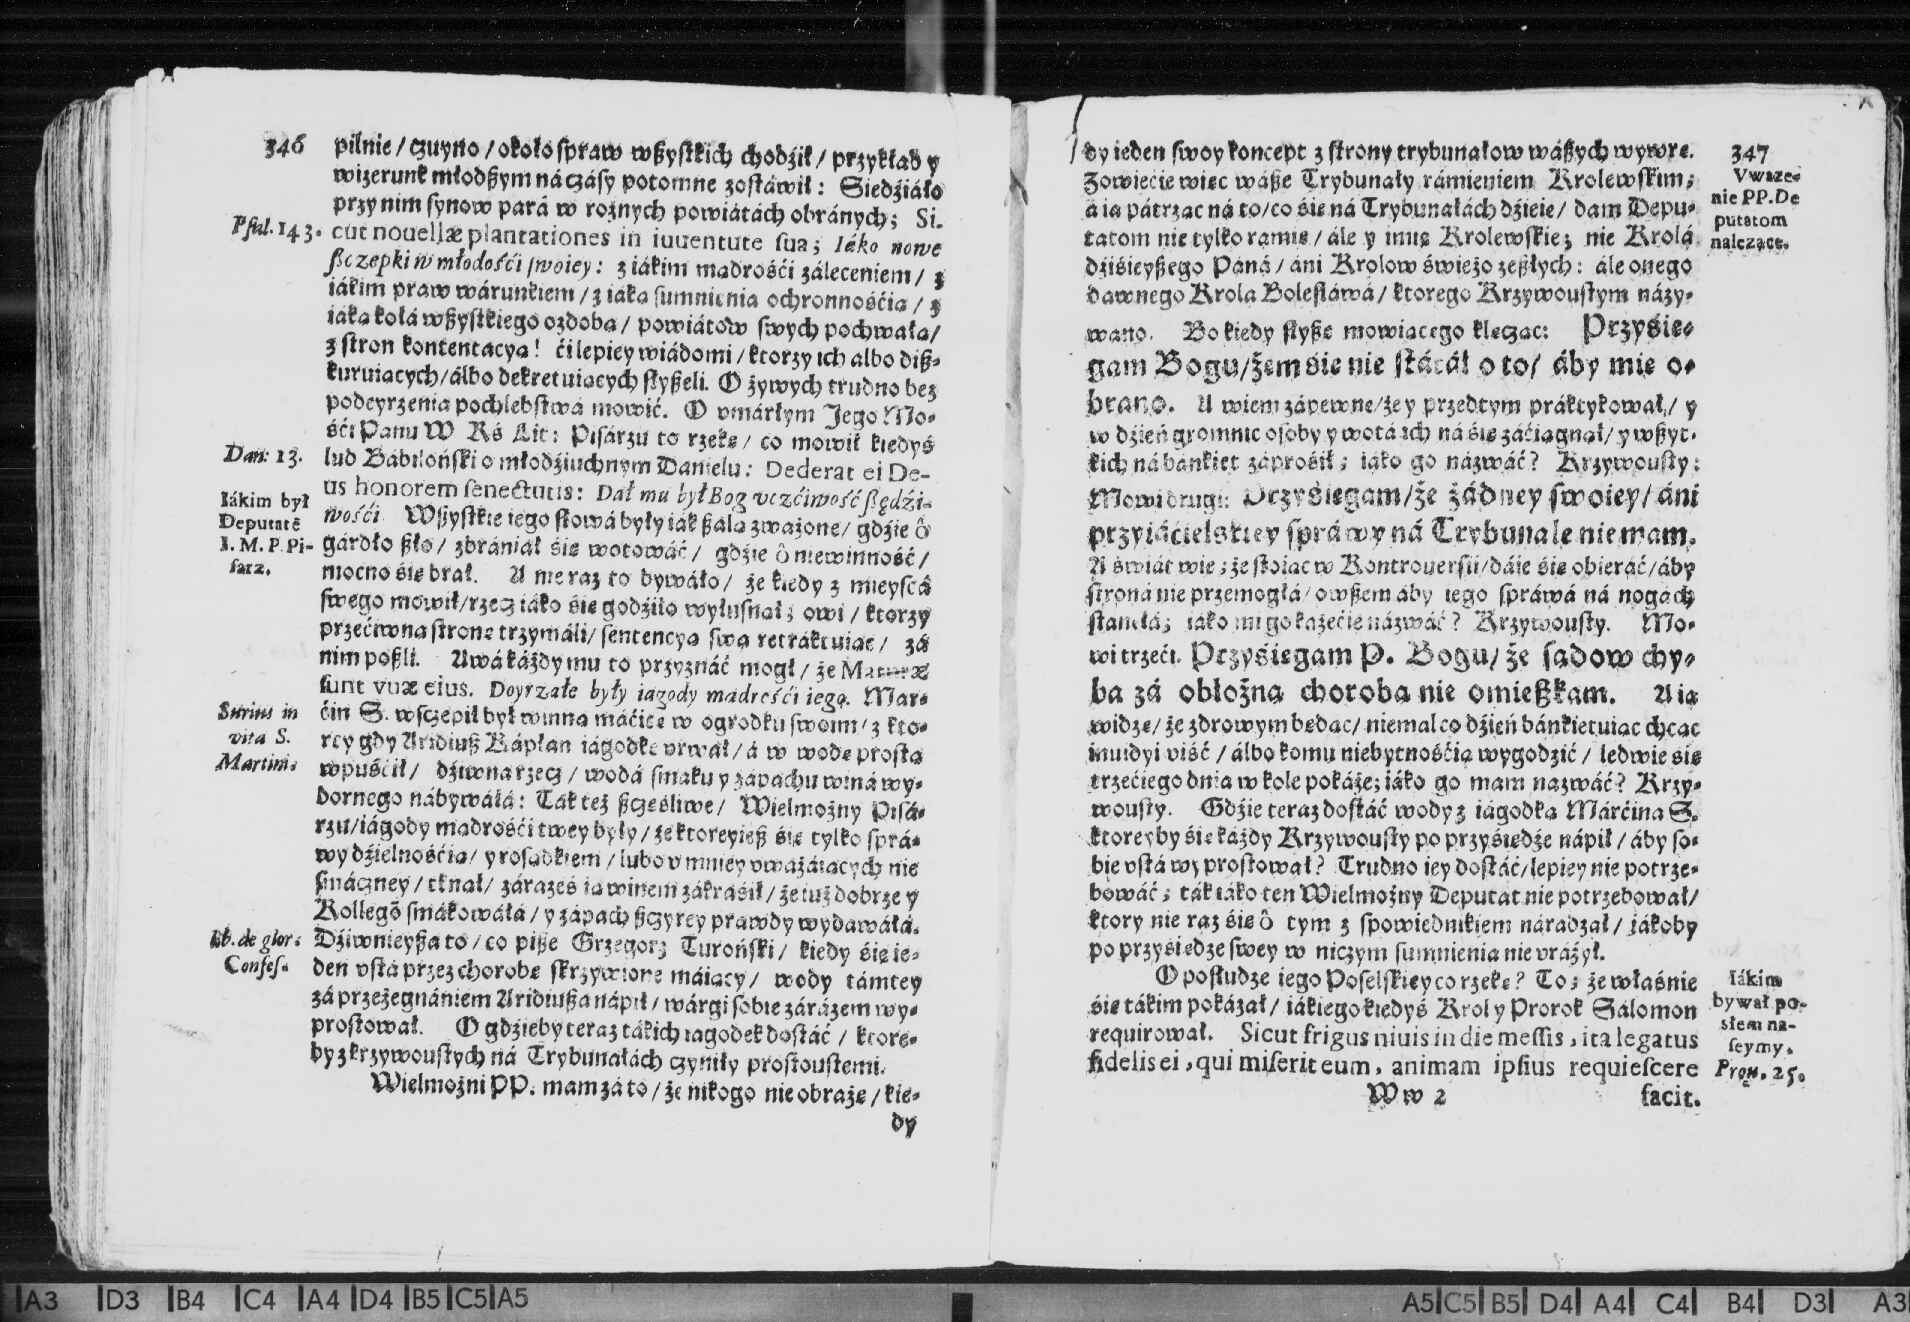 346
pilnie / czuyno / około ſpraw wßyſtkich chodźił / przykład y
wizerunk młodßym ná czáſy potomne zoſtáwił: Siedźiáło
przy nim ſynow pará w rożnych powiátách obránych; Si-
Pſal. 143.
cut nouellæ plantationes in iuuentute ſua; Iáko nowe
ßczepki w młodośći ſwoiey: z iákim mądrośći záleceniem / z
iákim praw wárunkiem / z iáką ſumnienia ochronnośćią / z
iáką kołá wßyſtkiego ozdobą / powiátow ſwych pochwałą /
z ſtron kontentacyą! ći lepiey wiádomi / ktorzy ich albo diß-
kuruiących / álbo dekretuiących ſłyßeli. O żywych trudno bez
podeyrzenia pochlebſtwá mowić. O vmárłym Jego Mo-
śći Pánu W Xś Lit: Piſárzu to rzekę / co mowił kiedyś
Dan: 13.
lud Bábiloński o młodźiuchnym Danielu: Dederat ei De-
us honorem ſenectutis: Dał mu był Bog vczćiwość ßędźi-
Iákim był
Deputatē
I. M. P. Pi-
ſarz.
wośći. Wßyſtkie iego ſłowá były iák ßalą zważone / gdźie ô
gárdło ßło / zbrániał śię wotowáć / gdźie ô niewinność /
mocno śię brał. A nie raz to bywáło / że kiedy z mieyſcá
ſwego mowił / rzecz iáko śię godźiło wyłuſnął; owi / ktorzy
przećiwną ſtronę trzymáli / ſentencyą ſwą retráktuiąc / zá
nim poßli. Awá káżdy mu to przyznáć mogł / że Maturæ
ſunt vuæ eius. Doyrzałe były iagody mądrośći iego. Mar-
Surius in
vita S.
Martini:
ćin S. wſczepił był winną máćicę w ogrodku ſwoim / z kto-
rey gdy Aridiuß Kápłan iágodkę vrwał / á w wodę proſtą
wpuśćił / dźiwna rzecz / wodá ſmáku y zápáchu winá wy-
bornego nábywáłá: Ták też ßczęśliwe / Wielmożny Piſá-
rzu / iágody mądrośći twey były / że ktoreyieß śię tylko ſprá-
wy dźielnośćią / y rosądkiem / lubo v mniey vważáiących nie
ſmáczney / tknął / záraześ ią winem zákráśił / że iuż dobrze y
Kollegõ ſmákowáłá / y zápách ßczyrey prawdy wydawáłá.
lib. de glor:
Confeſ.
Dźiwnieyßa to / co piße Grzegorz Turoński / kiedy śię ie-
den vſtá przez chorobę ſkrzywione máiący / wody támtey
zá przeżegnániem Aridiußa nápił / wárgi ſobie zárázem wy-
proſtował. O gdźieby teraz tákich iagodek doſtáć / ktore-
by z krzywouſtych ná Trybunałách czyniły proſtouſtemi.
Wielmożni PP. mam zá to / że nikogo nie obrażę / kie-
dy
347
dy ieden ſwoy koncept z ſtrony trybunałow wáßych wywrę.
Vważe-
nie PP. De
putatom
należące.
Zowiećie więc wáße Trybunały rámieniem Krolewſkim;
á ia pátrząc ná to / co śię ná Trybunałách dźieie / dam Depu-
tatom nie tylko ramię / ále y imię Krolewſkie; nie Krolá
dźiśieyßego Páná / áni Krolow świeżo zeßłych: ále onego
dawnego Krolá Boleſłáwá / ktorego Krzywouſtym názy-
wano. Bo kiedy ſłyßę mowiącego klęcząc: Przyśię-
gam Bogu / żem się nie ſtárał o to / áby mie o-
brano. A wiem zápewne / że y przedtym práktykował / y
w dźień gromnic oſoby y wotá ich ná śię záćiągnął / y wßyt-
kich ná bánkiet záprośił; iáko go názwáć? Krzywouſty:
Mowi drugi: Przyśięgam / że żádney ſwoiey / áni
przyiáćielskiey ſpráwy ná Trybunale nie mam.
A świát wie; że ſtoiąc w Kontrouerſii / dáie śię obieráć / áby
ſtroná nie przemogłá / owßem áby iego ſpráwá ná nogách
ſtánęłá; iáko mi go każećie názwáć? Krzywouſty. Mo-
wi trzeći. Przyśięgam P. Bogu / że ſądow chy-
ba zá obłożną chorobą nie omießkam. A ia
widzę / że zdrowym będąc / niemal co dźień bánkietuiąc chcąc
inuidyi viść / álbo komu niebytnośćią wygodzić / ledwie śię
trzećiego dnia w kole pokaże; iáko go mam nazwáć? Krzy-
wouſty. Gdźie teraz doſtáć wody z iágodką Márćina S.
ktoreyby śię káżdy Krzywouſty po przyśiędze nápił / áby ſo-
bie vſtá wyproſtował? Trudno iey doſtáć / lepiey nie potrze-
bowáć; ták iáko ten Wielmożny Deputat nie potrzebował /
ktory nie raz śię ô tym z ſpowiednikiem náradzał / iákoby
po przyśiędze ſwey w niczym ſumnienia nie vráźył.
Iákim
bywał po-
słem na-
ſeymy.
Prou. 25.
O poſłudze iego Poſelſkiey co rzekę? To; że właśnie
śię tákim pokázał / iákiego kiedyś Krol y Prorok Sálomon
requirował. Sicut frigus niuis in die meſſis, ita legatus
fidelis ei, qui miſerit eum, animam ipſius requieſcere
Ww 2
facit.